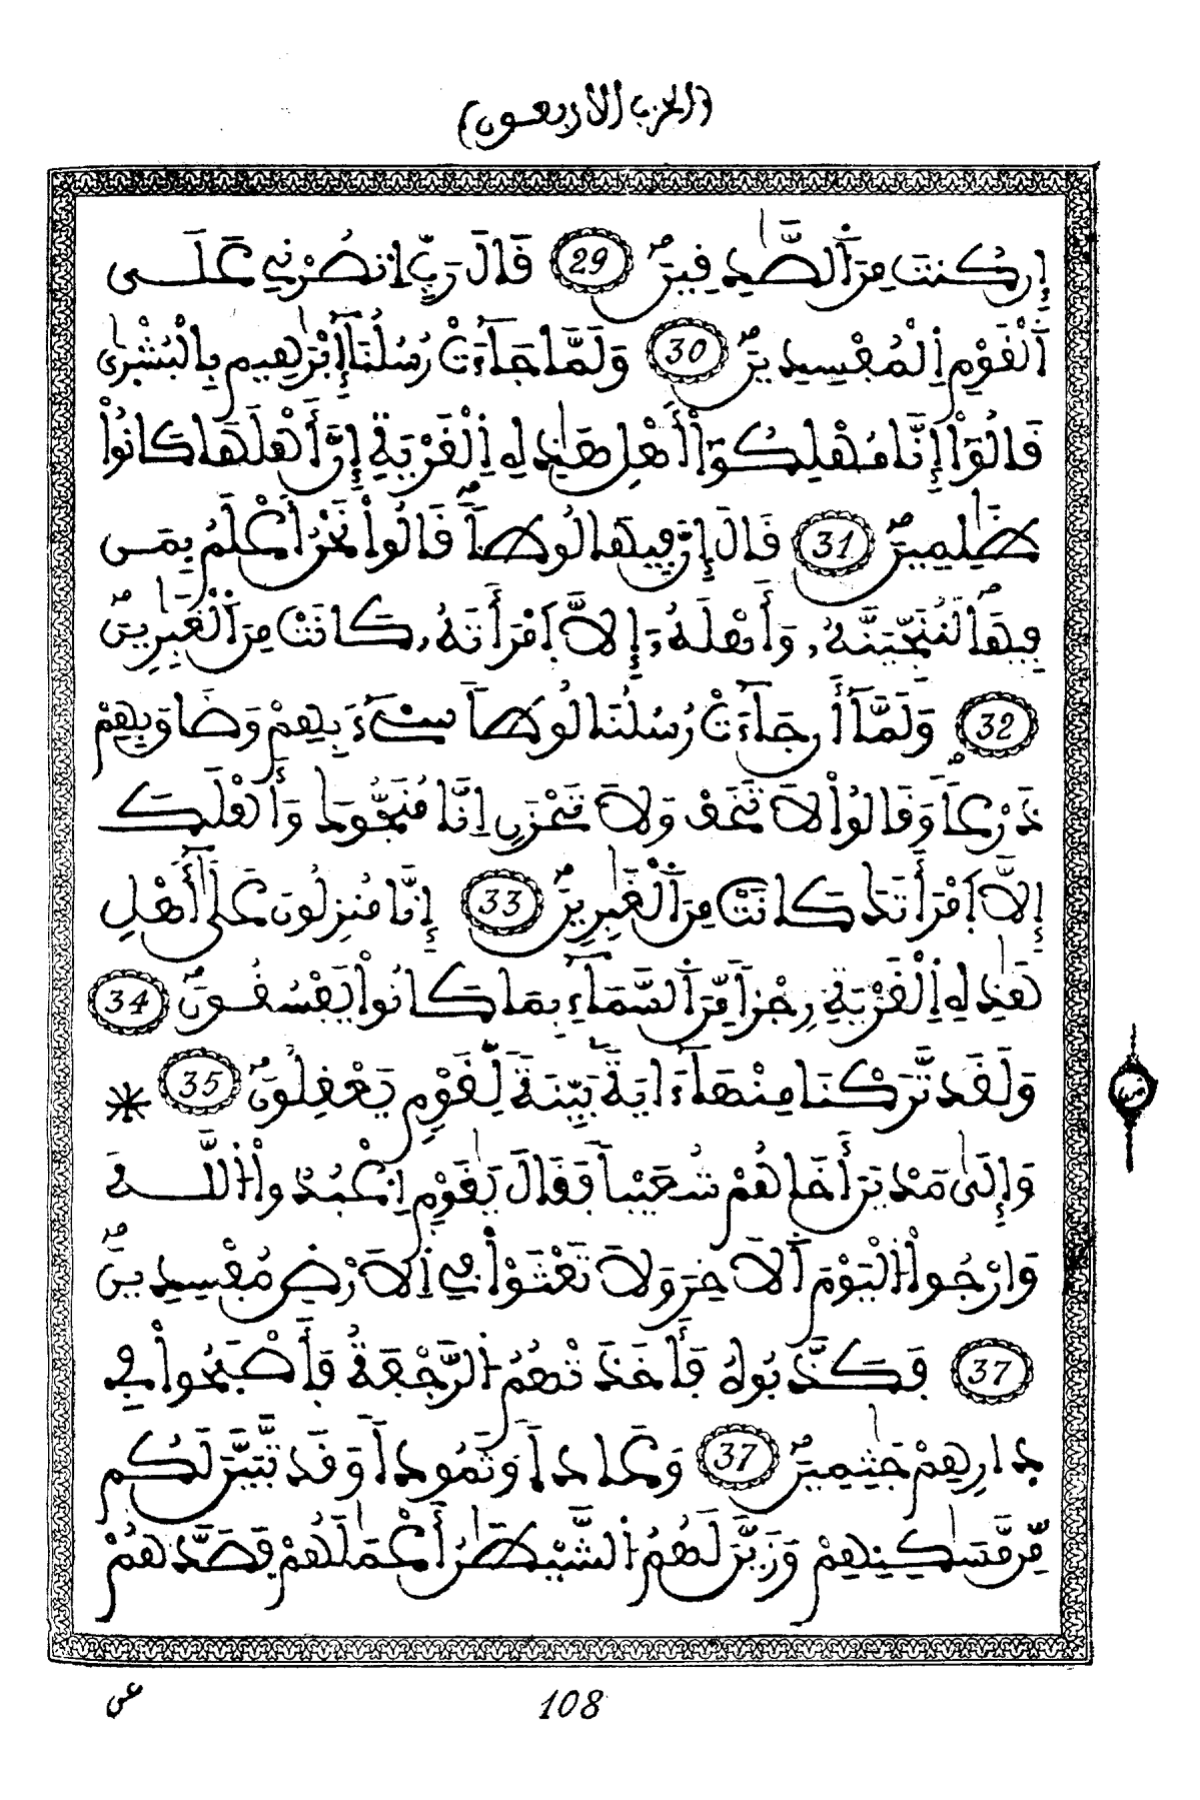 (الحزب الأربعون)
إِن كُنتَ مِنَ ٱلصَّٰدِفِينَ 29 قَالَ رَبِّ ٱنصُرْنِي عَلَى
ٱَلْقَوْمِ ٱِلْمُفْسِدِينَ 30 وَلَمَّا جَآءَتْ رُسُلُنَآ إِبْرَٰهِيمَ بِالْبُشْر۪ىٰ
قَالُوٓاْ إِنَّا مُهْلِكُوٓاْ أَهْلِ هَٰذِهِ ٱِلْقَرْيَةِ إِنَّ أَهْلَهَا كَانُواْ
ظَٰلِمِينَ 31 قَالَ إِنَّ فِيهَا لُوطاٗ قَالُواْ نَحْنُ أَعْلَمُ بِمَن
فِيهَا لَنُنَجِّيَنَّهُۥ وَأَهْلَهُۥٓ إِلَّا ٱَمْرَأَتَهُۥ كَانَتْ مِنَ ٱلْغَٰبِرِينَ
32 وَلَمَّآ أَن جَآءَتْ رُسُلُنَا لُوطاٗ سِےٓءَ بِهِمْ وَضَاقَ بِهِمْ
ذَرْعاٗ وَقَالُواْ لَا تَخَفْ وَلَا تَحْزَنِ اِنَّا مُنَجُّوكَ وَأَهْلَكَ
إِلَّا ٱَمْرَأَتَكَ كَانَتْ مِنَ ٱلْغَٰبِرِينَ 33 إِنَّا مُنزِلُونَ عَلَىٰٓ أَهْلِ
هَٰذِهِ ٱِلْقَرْيَةِ رِجْزاٗ مِّنَ ٱلسَّمَآءِ بِمَا كَانُواْ يَفْسُقُونَ 34
وَلَقَد تَّرَكْنَا مِنْهَآ ءَايَةَۢ بَيِّنَةٗ لِّقَوْمٖ يَعْقِلُونَ 35 *
وَإِلَىٰ مَدْيَنَ أَخَاهُمْ شُعَيْباٗ فَقَالَ يَٰقَوْمِ ٱِعْبُدُواْ ٱللَّهَ
وَارْجُواْ ٱلْيَوْمَ ٱَلَاخِرَ وَلَا تَعْثَوْاْ فِي ٱِلَارْضِ مُفْسِدِينَ
37 فَكَذَّبُوهُ فَأَخَذَتْهُمُ ٱلرَّجْفَةُ فَأَصْبَحُواْ فِي
دِارِهِمْ جَٰثِمِينَ 37 وَعَاداٗ وَثَمُوداٗ وَقَد تَّبَيَّنَ لَكُم
مِّن مَّسَٰكِنِهِمْ وَزَيَّنَ لَهُمُ ٱلشَّيْطَٰنُ أَعْمَٰلَهُمْ فَصَدَّهُمْ
108